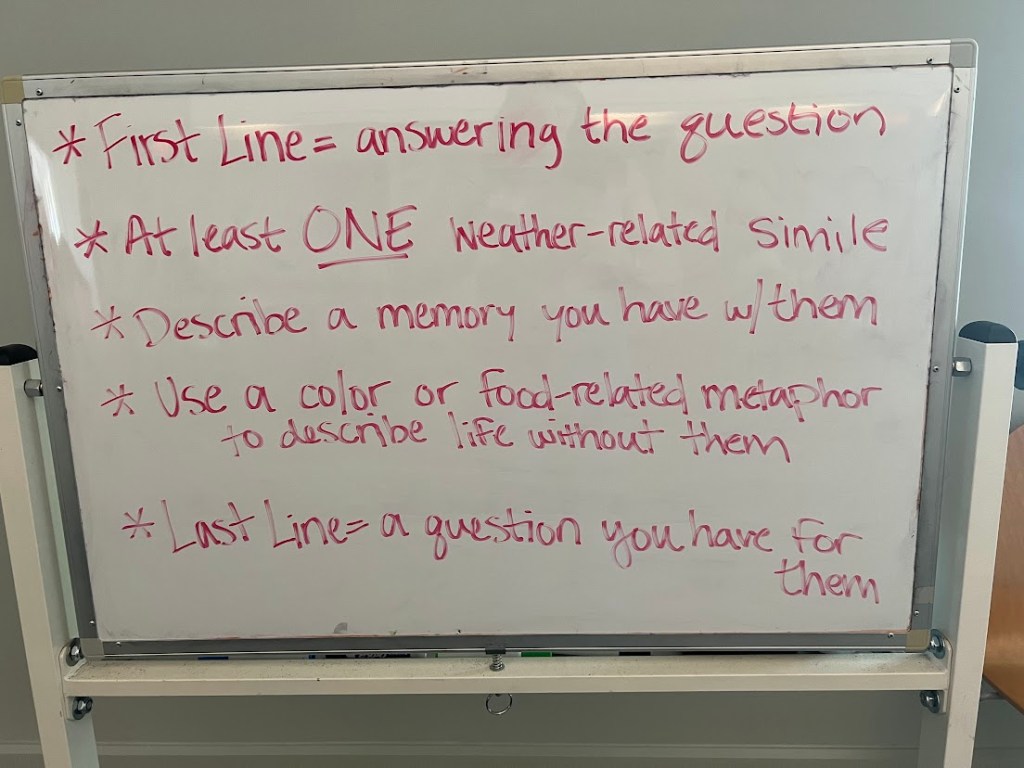 * First Line = answering the question
* At least ONE weather-related simile
* Describe a memory you have w/ them
* Use a color or food-related metaphor
to describe life without them
* Last Line = a question you have for
them